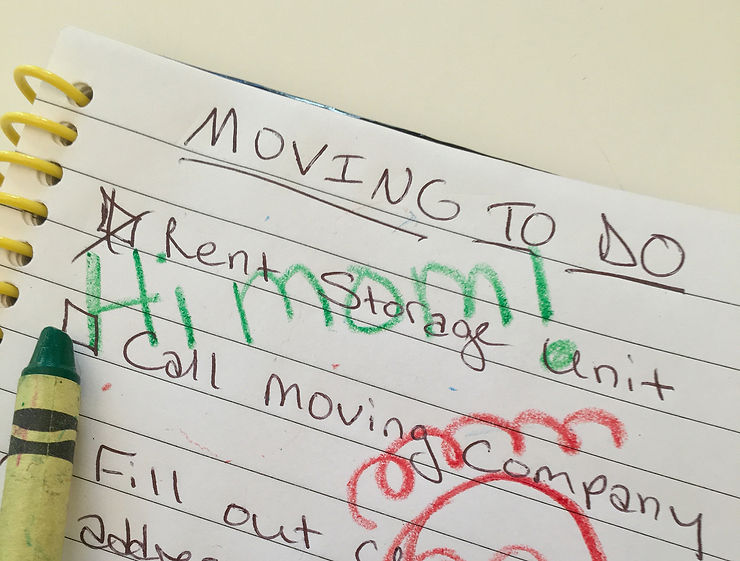 MOVING TO DO
Rent Storage unit
Hi mom!
Call moving Company
Fill out